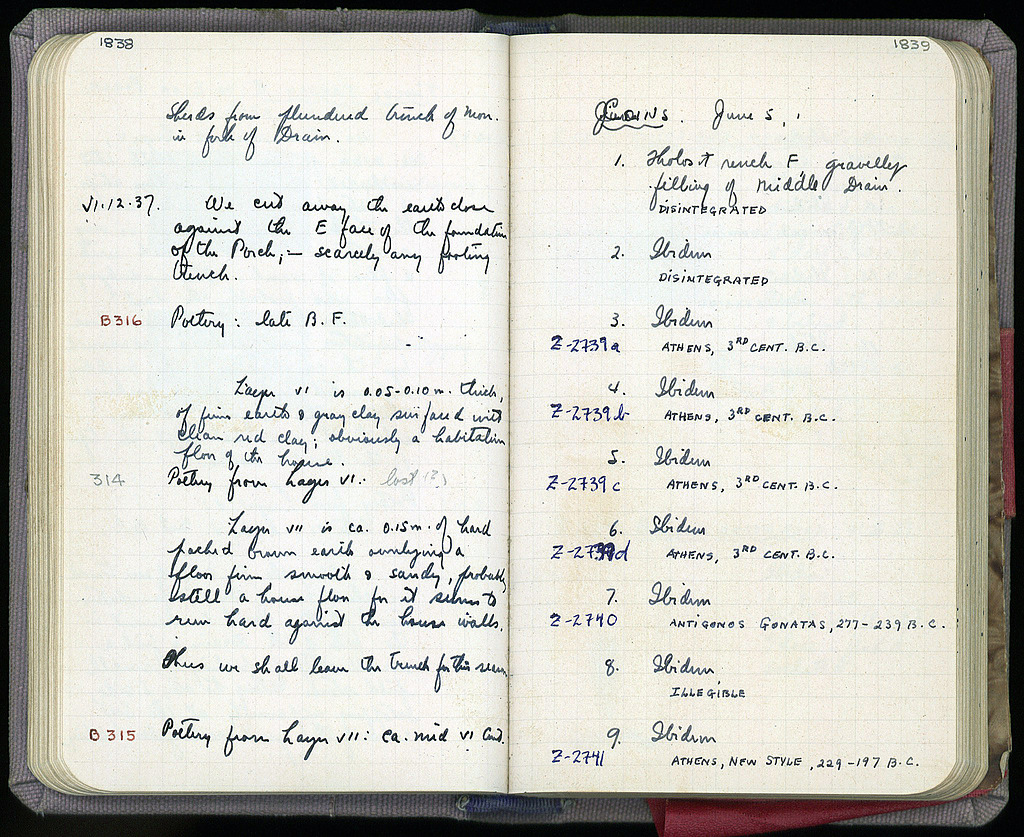 1838
Sherds from plundered trench of Mon.
in fork of Drain.
VI.12.37. We cut away the earth close
against the E face of the foundation
of the Porch; — scarcely any footing
trench.
B316 Pottery: late B.F.
Layer VI is 0.05-0.10 m. thick,
of firm earth & gray clay surfaced with
clean red clay; obviously a habitation
floor of the house.
314 Pottery from Layer VI: lost (?)
Layer VII is ca. 0.15 m. of hard
packed brown earth underlying a
floor firm smooth & sandy, probably
still a house floor for it seems to
run hard against the house walls.
Thus we shall leave the trench for this season
B 315 Pottery from Layer VII: ca. mid VI Cent.
1839
COINS. June 5,
1. Tholos Trench F gravelly
filling of Middle Drain.
DISINTEGRATED
2. Ibidem
DISINTEGRATED
3. Ibidem
Z-2739a ATHENS, 3RD CENT. B.C.
4. Ibidem
Z-2739b ATHENS, 3RD CENT. B.C.
5. Ibidem
Z-2739c ATHENS, 3RD CENT. B.C.
6. Ibidem
Z-2739d ATHENS, 3RD CENT. B.C.
7. Ibidem
Z-2740 ANTIGONOS GONATAS, 277-239 B.C.
8. Ibidem
ILLEGIBLE
9. Ibidem
Z-2741 ATHENS, NEW STYLE, 229-197 B.C.